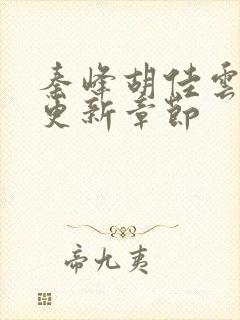 秦峰胡佳雲
史新章節
帝九夷